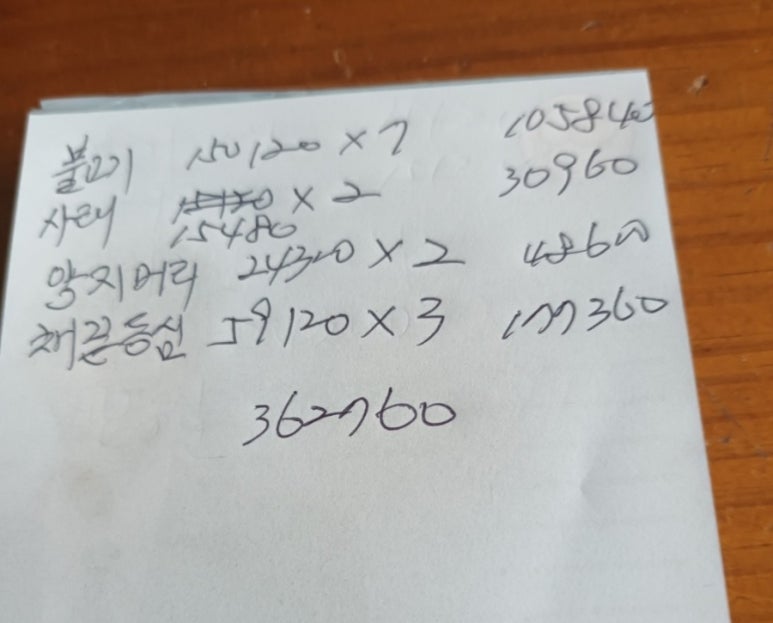 불고기 150120 × 7 105840
사태 15120 × 2 30960
15480
양지머리 24300 × 2 48600
채끝등심 59120 × 3 177360
362760